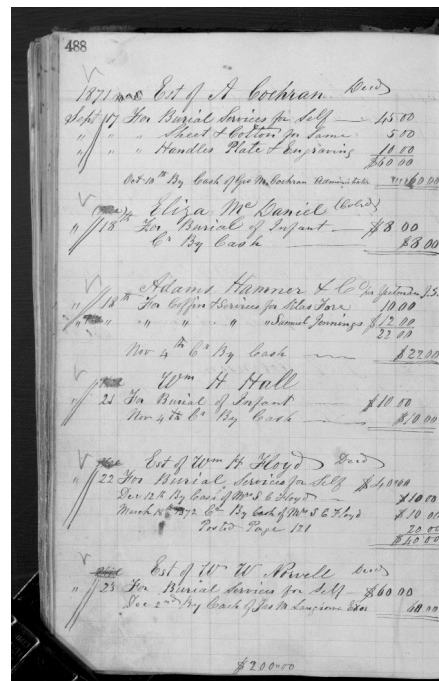 488
1871 Est of A Cochran Decd
Sept 17 For Burial Services for Self — 45.00
" " Sheet & Cotton for Same 5.00
" " Handles Plate & Engraving 10.00
$60.00
Oct 10th By Cash of Geo M Cochran Administrator 60.00
Eliza McDaniel (Cold)
" 18th For Burial of Infant — $8.00
Cr By Cash — $8.00
Adams Hamner & Co per
" 18th For Coffin & Services for Silas Fore 10.00
" " " " " Samuel Jennings $12.00
22.00
Nov 4th Cr By Cash — $22.00
Wm H Hall
" 21 For Burial of Infant — $10.00
Nov 4th Cr By Cash — $10.00
Est of Wm H Floyd Decd
" 22 For Burial Services for Self $40.00
Dec 12th By Cash of Mrs S C Floyd — $10.00
March 1872 Cr By Cash of Mrs S C Floyd $10.00
Posted Page 121 20.00
$40.00
Est of W W Norvell Decd
" 23 For Burial Services for Self — $60.00
Dec 2nd By Cash of Jas M Exor 60.00
$200.00